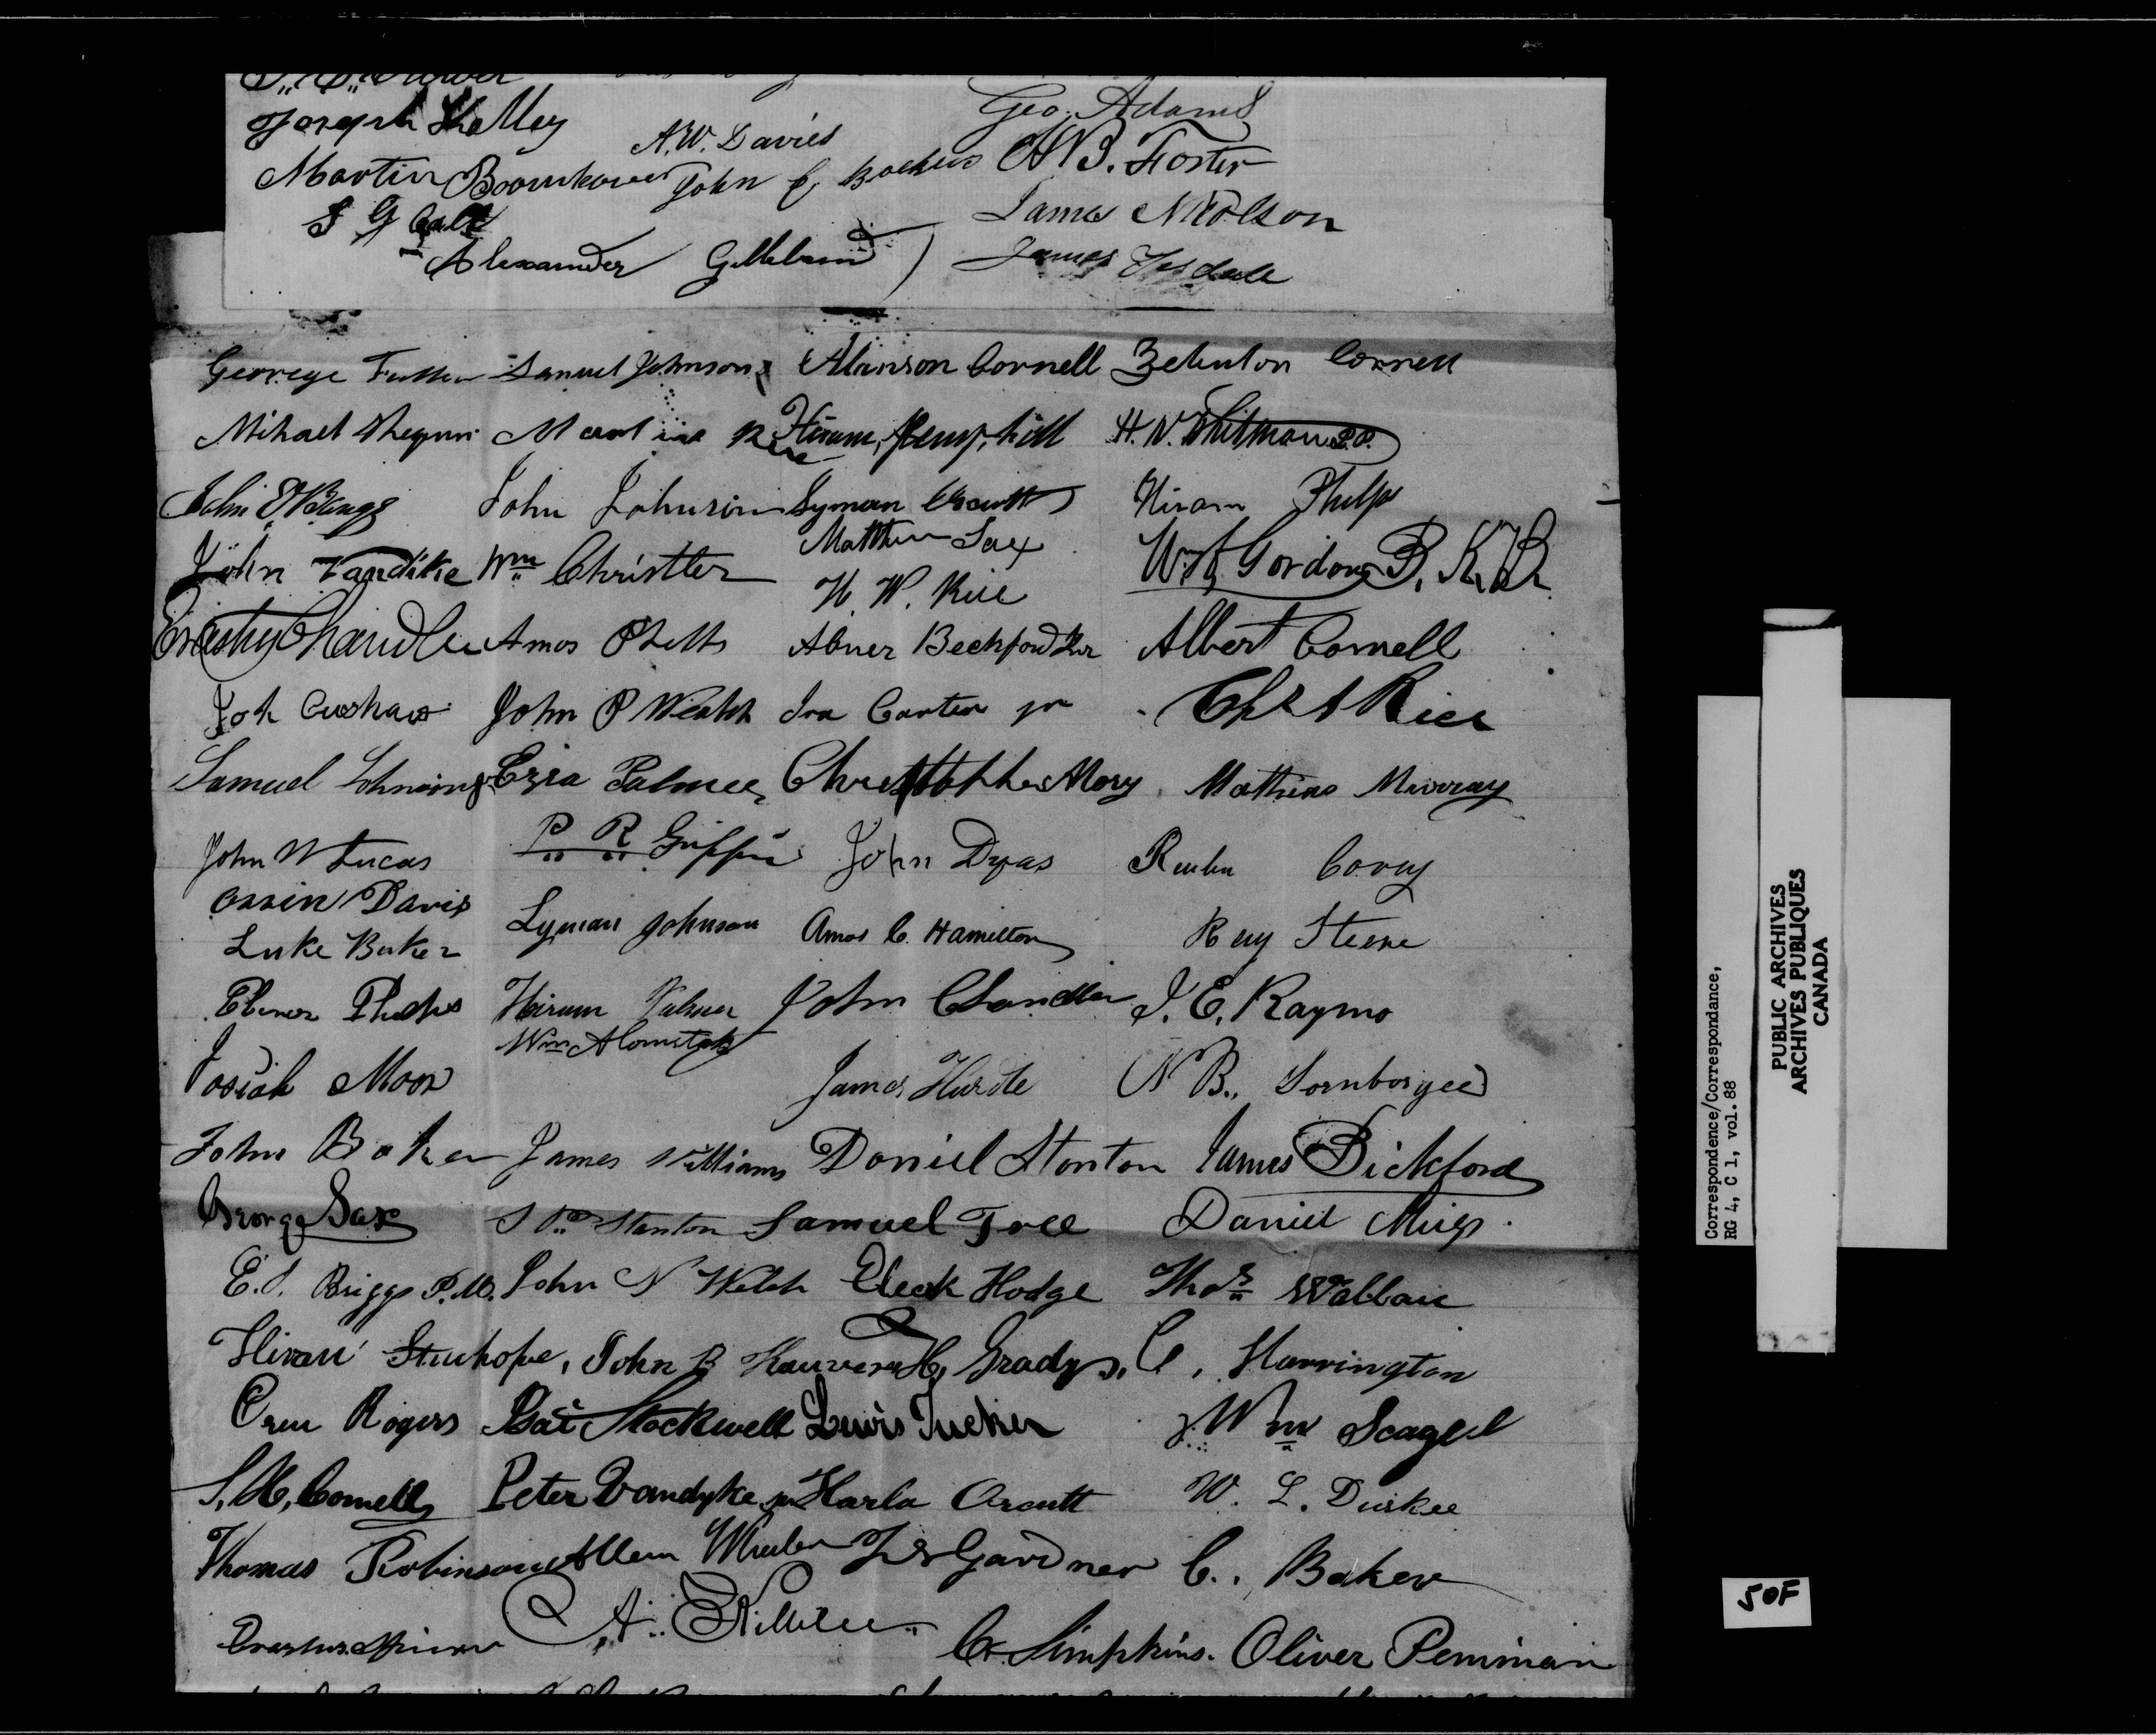 Joseph Shelley
Geo. Adams
A.W. Davies
Martin Boomhower John C, Backus A B. Foster
S G
James Nicolson
Alexander Gilleland James
George Fuller Samuel Johnson Alanson Cornell Zebulon Cornell
Mihael Martin Rice Hiram Hemphill H. N. Whitman P.P.
John John Johnson Lyman Orcutt Hiram Phelps
Matthew Sax
John Vandike Wm Christler Wm Gordon B. K. B.
H. W. Rice
Erastus Chandler Amos Phelps Abner Beckford Albert Cornell
Joh Cushaw John P Welch Ira Carter jr Chs A Rice
Samuel Johnson jr Ezra Palmer Christopher Mory Mathias Murray
P. R. Griffin
John W Lucas John Dyas Reuben Corey
Orrin Davis
Lyman Johnson Amos C. Hamilton Ray Steene
Luke Baker
Ebener Phelps Hiram Palmer John Chandler J. E. Raymo
Wm
Josiah Moor James Hurdle N B. Sornborgee
John Baker James Williams Daniel Stonton James Bickford
George Sax Stanton Samuel Tree Daniel Meigs.
E. S. Briggs P.M. John N Welch Eleck Hodge Thos Wallace
Hiram Stinhope, John B H, Grady C, Harrington
Oren Rogers Stockwell Lewis Tucker Wm Scagel
S, H, Cornell Peter Vandyke jr Harlo Orcutt W. L. Duskee
Thomas Robinson Allen Wheeler Gardner C.. Baker
A.
Erastus C. Simpkins. Oliver Penniman
Correspondence/Correspondance,
RG 4, C 1, vol. 88
PUBLIC ARCHIVES
ARCHIVES PUBLIQUES
CANADA
50F